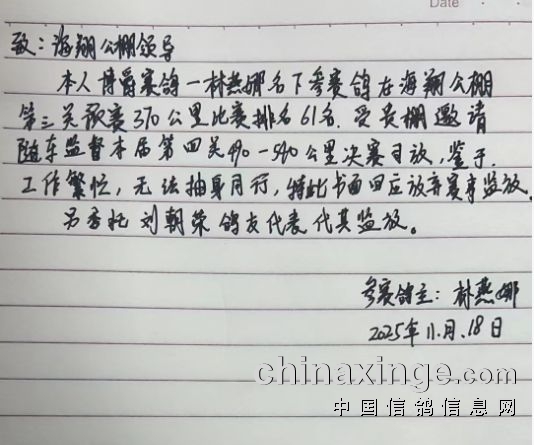 Date
致：海翔公棚领导
本人博爵赛鸽一林燕娜名下参赛鸽在海翔公棚
第三关预赛370公里比赛排名61名.受贵棚邀请
随车监督本届第四关490-540公里决赛司放,鉴于.
工作繁忙，无法抽身同行，特此书面回应放弃赛事监放.
另委托刘朝荣鸽友代表代其监放。
参赛鸽主：林燕娜
2025年11.月.18日
chinaxinge.com
中国信鸽信息网